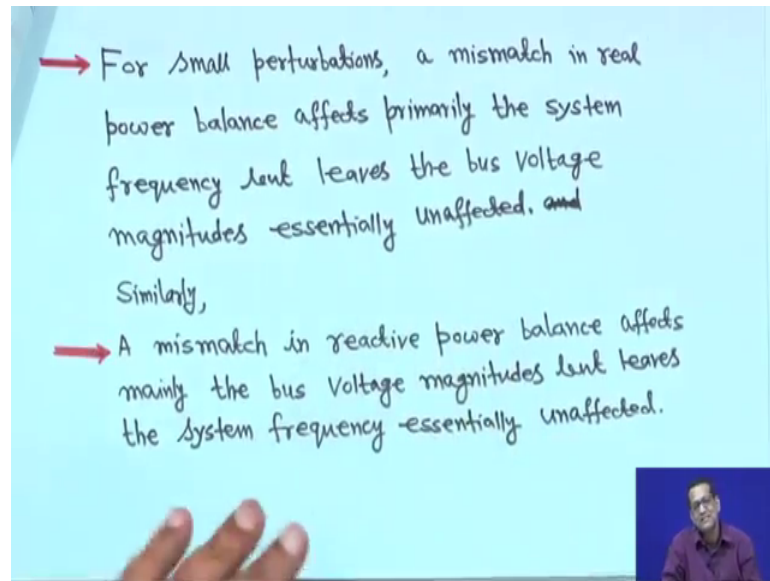 For small perturbations, a mismatch in real
power balance affects primarily the system
frequency but leaves the bus voltage
magnitudes essentially unaffected. and
Similarly,
A mismatch in reactive power balance affects
mainly the bus voltage magnitudes but leaves
the system frequency essentially unaffected.